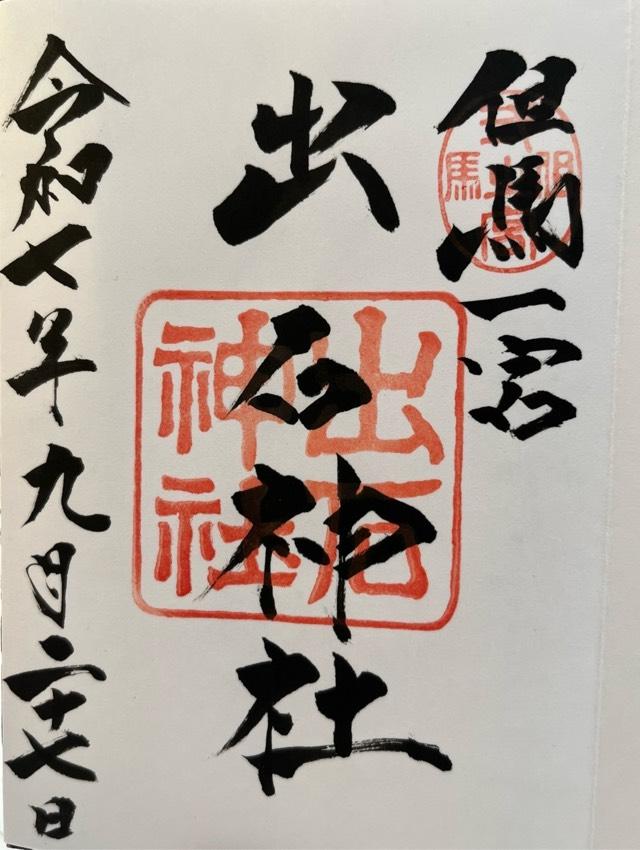 但馬一宮
出石神社
出石神社
令和七年九月二十七日